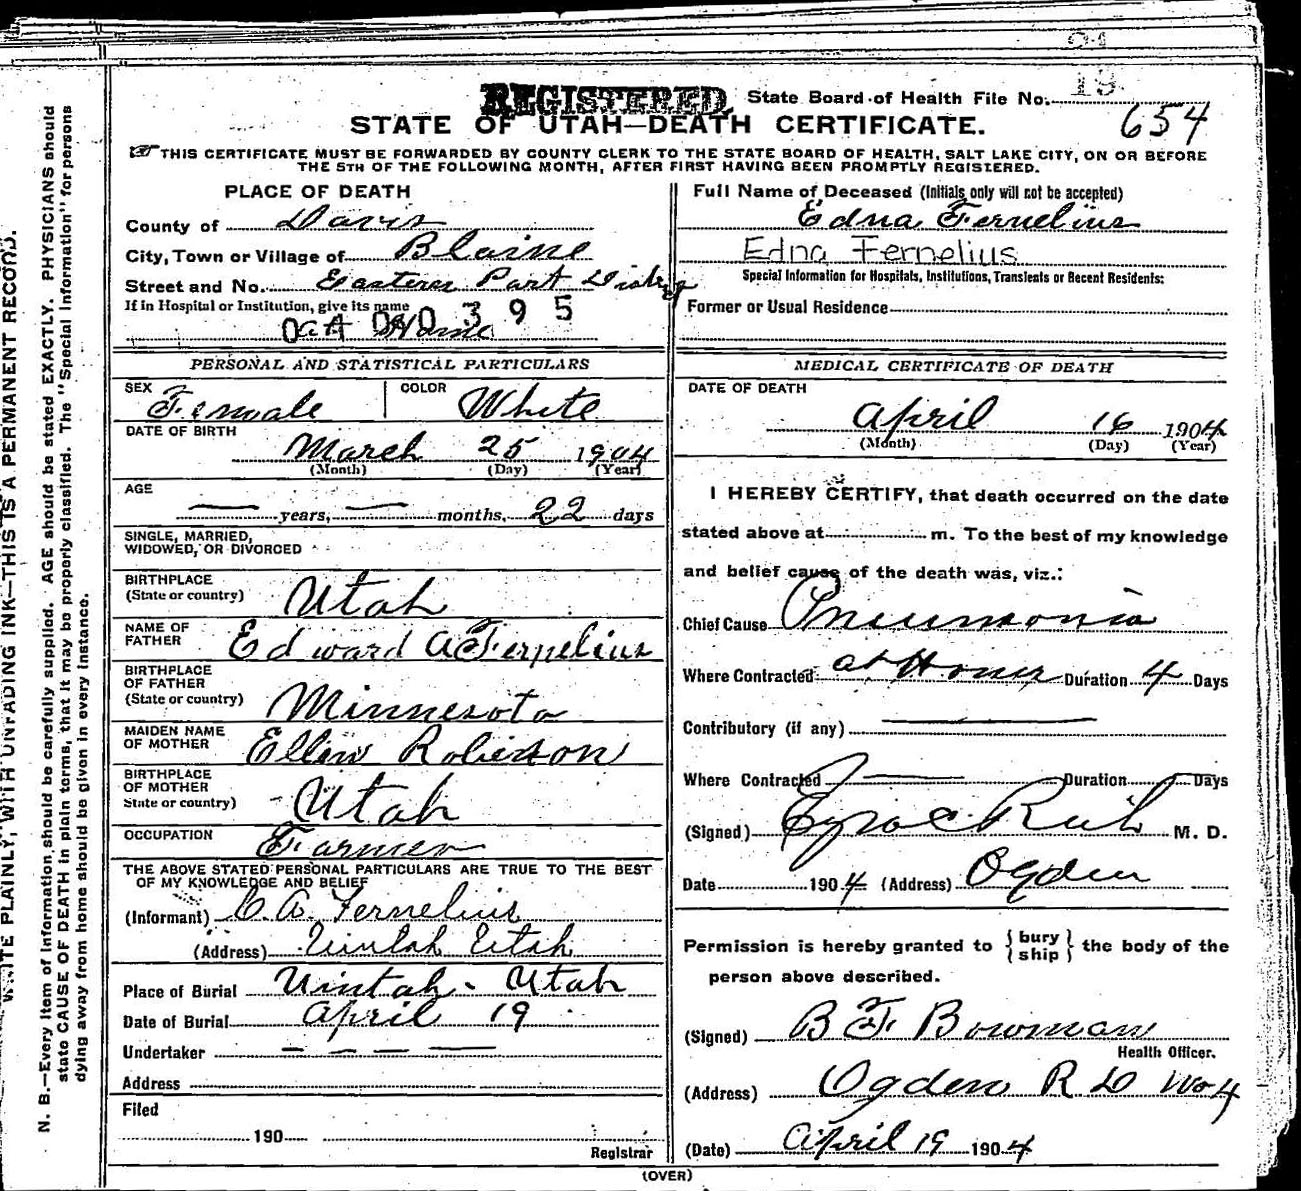 REGISTERED State Board of Health File No. 19
654
STATE OF UTAH—DEATH CERTIFICATE.
THIS CERTIFICATE MUST BE FORWARDED BY COUNTY CLERK TO THE STATE BOARD OF HEALTH, SALT LAKE CITY, ON OR BEFORE
THE 5TH OF THE FOLLOWING MONTH, AFTER FIRST HAVING BEEN PROMPTLY REGISTERED.
PLACE OF DEATH
County of Davis
City, Town or Village of Blaine
Street and No. Eastern Part
If in Hospital or Institution, give its name
At Home
0 0 0 3 9 5
PERSONAL AND STATISTICAL PARTICULARS
SEX Female COLOR White
DATE OF BIRTH
March 25 1904
(Month) (Day) (Year)
AGE
— years, — months, 22 days
SINGLE, MARRIED,
WIDOWED, OR DIVORCED
BIRTHPLACE
(State or country) Utah
NAME OF
FATHER Edward A Fernelius
BIRTHPLACE
OF FATHER
(State or country) Minnesota
MAIDEN NAME
OF MOTHER Ellen
BIRTHPLACE
OF MOTHER
State or country) Utah
OCCUPATION Farmer
THE ABOVE STATED PERSONAL PARTICULARS ARE TRUE TO THE BEST
OF MY KNOWLEDGE AND BELIEF
(Informant) A. Fernelius
(Address) Uintah Utah
Place of Burial Uintah - Utah
Date of Burial April 19
Undertaker — — — —
Address
Filed
190
Registrar
Full Name of Deceased (Initials only will not be accepted)
Edna Fernelius
Edna Fernelius
Special Information for Hospitals, Institutions, Transients or Recent Residents:
Former or Usual Residence
MEDICAL CERTIFICATE OF DEATH
DATE OF DEATH
April 16 1904
(Month) (Day) (Year)
I HEREBY CERTIFY, that death occurred on the date
stated above at m. To the best of my knowledge
and belief cause of the death was, viz.:
Chief Cause Pneumonia
Where Contracted at Home Duration 4 Days
Contributory (if any) —
Where Contracted — Duration Days
(Signed) Ezra C Rich M. D.
Date 1904 (Address) Ogden
Permission is hereby granted to { bury ship } the body of the
person above described.
(Signed) B F Bowman
Health Officer.
(Address) Ogden R D No 4
(Date) April 19 1904
(OVER)
WRITE PLAINLY, WITH UNFADING INK—THIS IS A PERMANENT RECORD.
N. B.—Every item of information should be carefully supplied. AGE should be stated EXACTLY. PHYSICIANS should
state CAUSE OF DEATH in plain terms, that it may be properly classified. The "Special Information" for persons
dying away from home should be given in every instance.